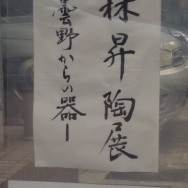 林昇陶展
雲野からの器ー